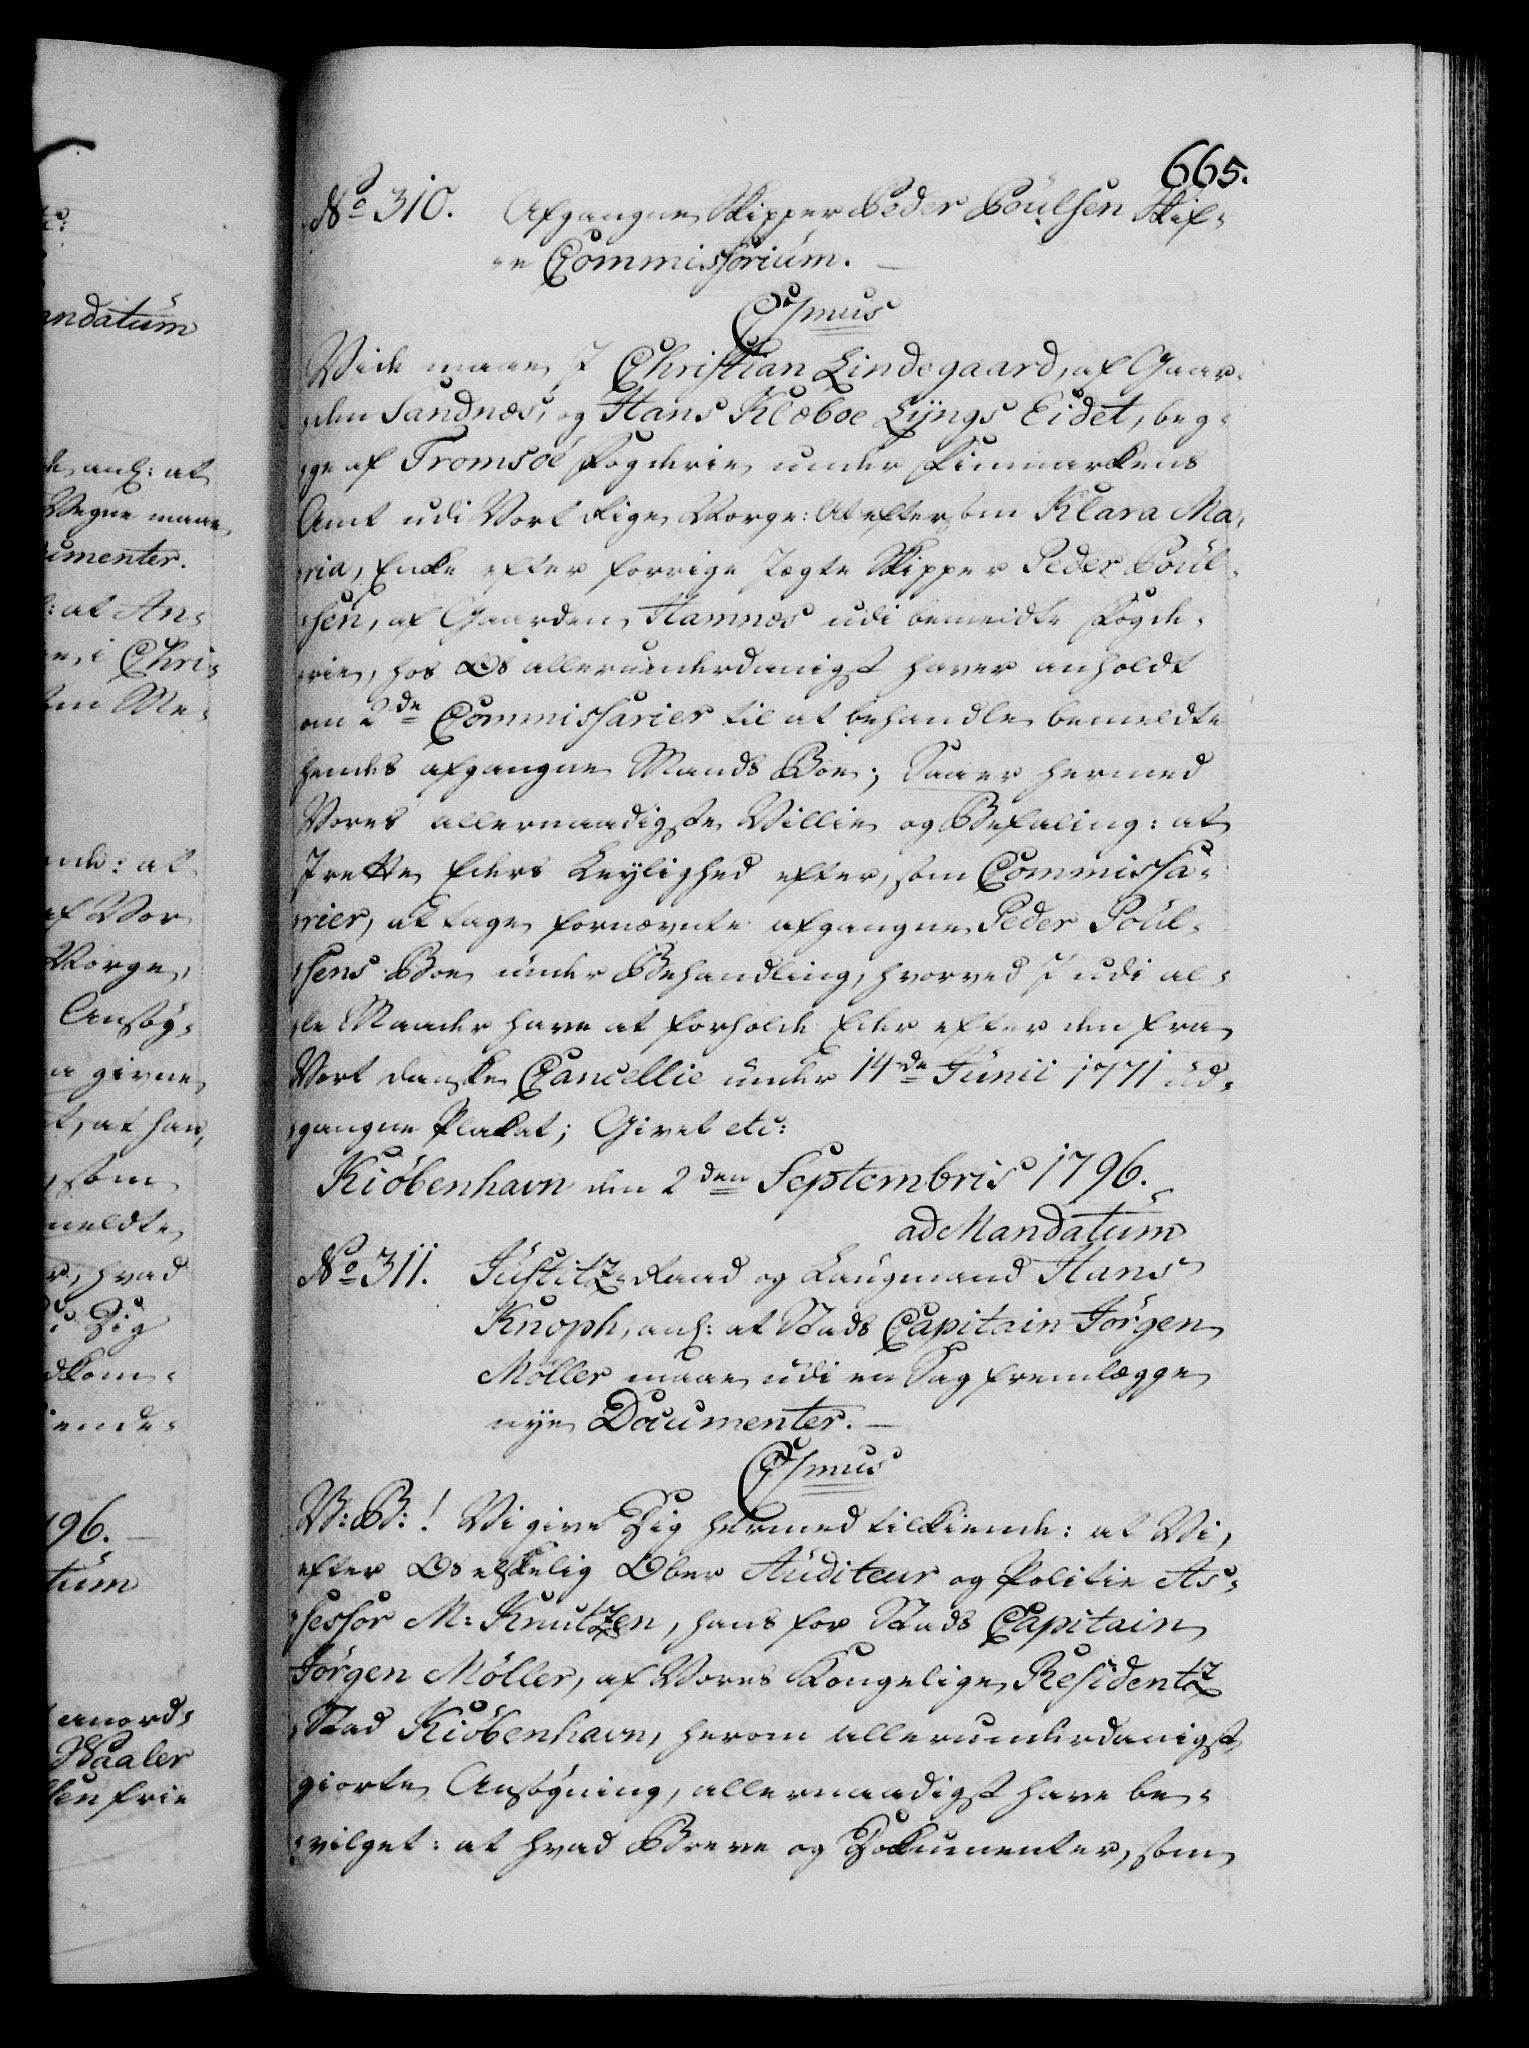 665.
No 310. Afgangne Skipper Peder Poulsen Skif-
-te Commissorium.
C7mus
Vide maae I Christian Lindegaard, af Gaar-
den Sandnæs, og Hans Klæboe Lyngs Eidet, beg-
-ge af Tromsöe Fogderie under Finmarkens
Amt udi Vort Rige Norge: At eftersom Klara Ma-
-ria, Enke efter forrige Jægte Skipper Peder Poul-
-sen, af Gaarden Hamnæs udi bemeldte Fogde-
-rie, hos Os allerunderdanigst haver anholdt
om 2de Commissarier til at behandle bemeldte
hendes afgangne Mands Boe; Saa er hermed
Vores allernaadigste Villie og Befaling: at
I rette Eders Leylighed efter, som Commissa-
-rier, at tage fornævnte afgangne Peder Poul-
-sens Boe under Behandling, hvorved I udi al-
-le Maader have at forholde Eder efter den fra
Vort danske Cancellie under 14de Junii 1771 ud-
-gangne Plakat; Givet etc:
Kiöbenhavn den 2den Septembris 1796.
ad Mandatum
No 311. Justitz-Raad og Laugmand Hans
Knoph, anl: at Stads Capitain Jörgen
Möller maae udi en Sag fremlægge
nye Documenter.
C7mus
V: B:! Vi give Dig hermed tilkiende: at Vi,
efter Os elskelig Ober Auditeur og Politie As-
-sessor M: Knutzen, hans for Stads Capitain
Jörgen Möller, af Vores Kongelige Residentz
Stad Kiöbenhavn, herom allerunderdanigst
giorte Ansögning, allernaadigst have be-
-vilget: at hvad Breve og Dokumenter, som